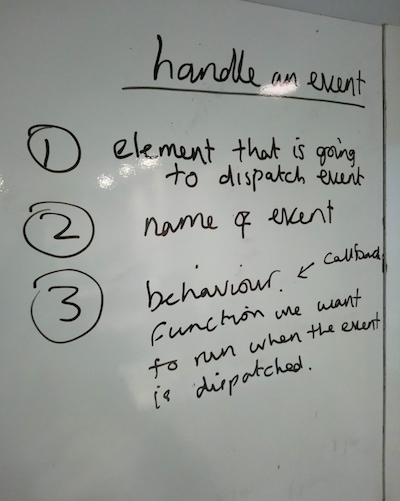 handle an event
1 element that is going
to dispatch event
2 name of event
3 behaviour. ← callback
Function we want
to run when the event
is dispatched.